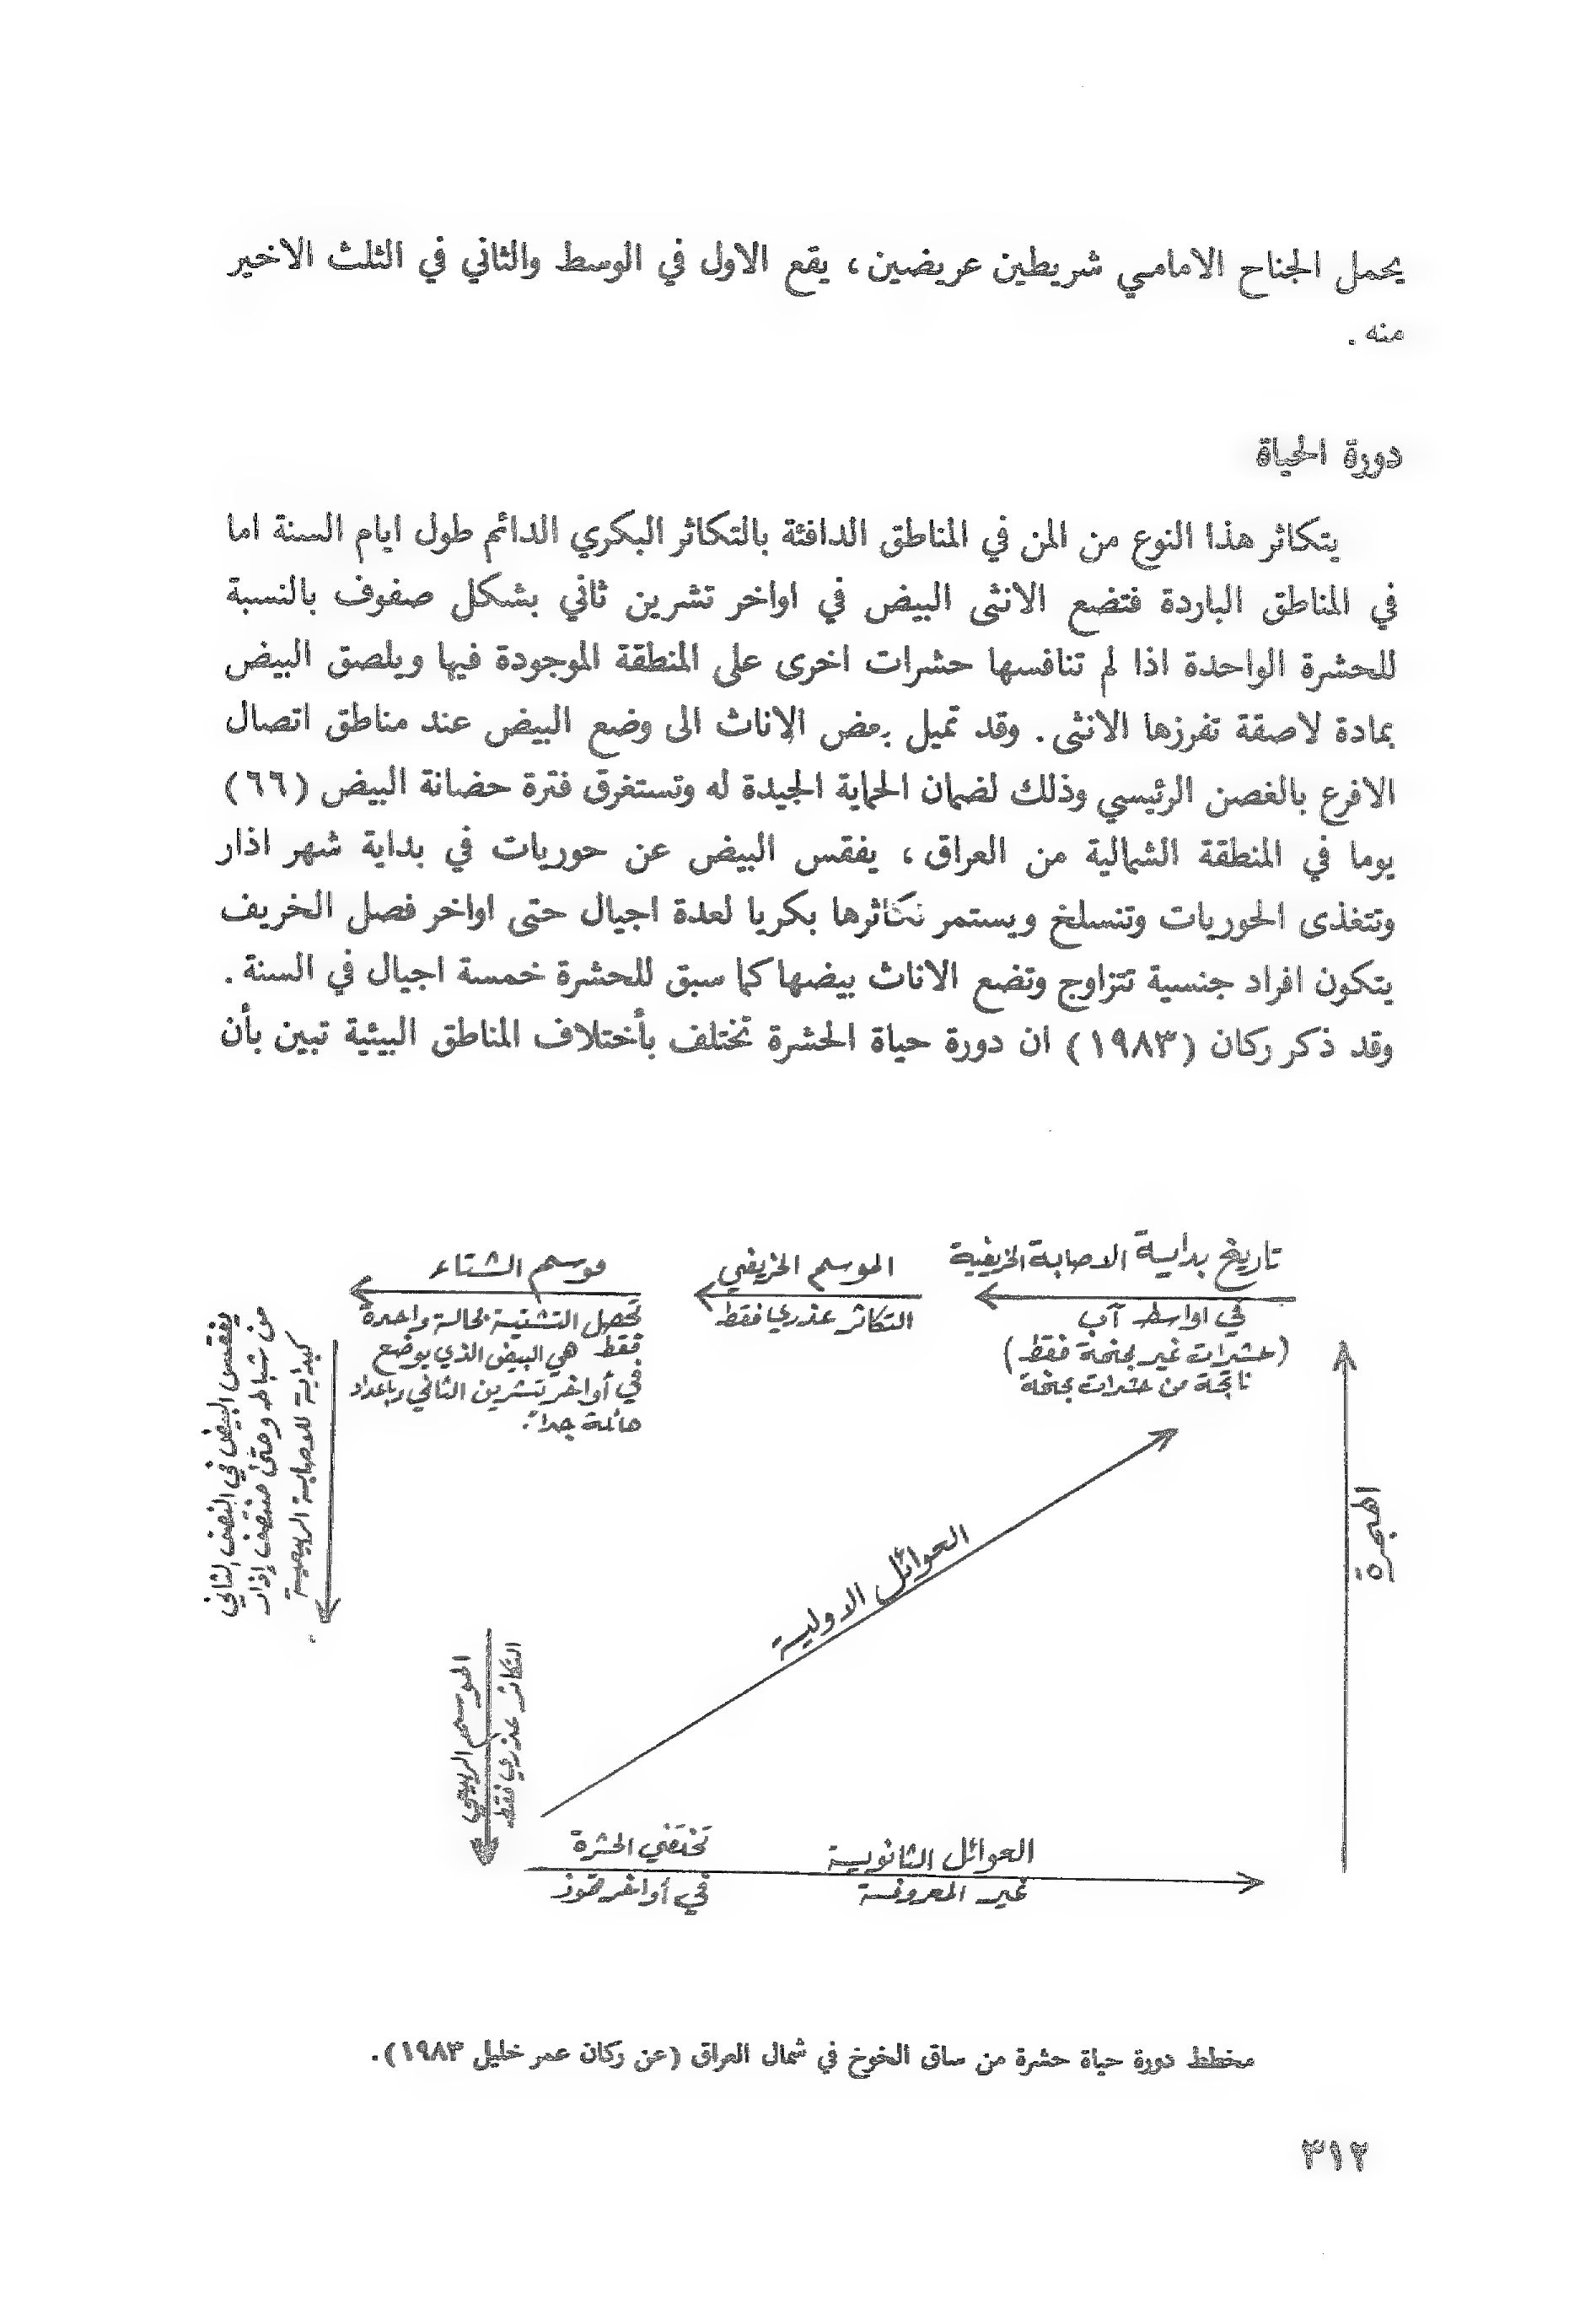 يحمل الجناح الامامي شريطين عريضين ، يقع الاول في الوسط والثاني في الثلث الاخير
منه .
دورة الحياة
يتكاثر هذا النوع من المن في المناطق الدافئة بالتكاثر البكري الدائم طول ايام السنة اما
في المناطق الباردة فتضع الانثى البيض في اواخر تشرين ثاني بشكل صفوف بالنسبة
للحشرة الواحدة اذا لم تنافسها حشرات اخرى على المنطقة الموجودة فيها ويلصق البيض
بمادة لاصقة تفرزها الانثى . وقد تميل بعض الاناث الى وضع البيض عند مناطق اتصال
الافرع بالغصن الرئيسي وذلك لضمان الحماية الجيدة له وتستغرق فترة حضانة البيض (٦٦)
يوما في المنطقة الشمالية من العراق ، يفقس البيض عن حوريات في بداية شهر اذار
وتتغذى الحوريات وتنسلخ ويستمر تكاثرها بكريا لعدة اجيال حتى اواخر فصل الخريف
يتكون افراد جنسية تتزاوج وتضع الاناث بيضها كما سبق للحشرة خمسة اجيال في السنة .
وقد ذكر ركان (١٩٨٣) ان دورة حياة الحشرة تختلف بأختلاف المناطق البيئية تبين بأن
تاريخ بداية الاصابة الخريفية
في اواسط آب
(حشرات غير مجنحة فقط)
ناتجة من حشرات مجنحة
الموسم الخريفي
التكاثر عذري فقط
موسم الشتاء
تحصل التشتية بحالة واحدة
فقط هي البيض الذي يوضع
في أواخر تشرين الثاني وباعداد
هائلة جداً.
يفقس البيض في النصف الثاني
من شباط وحتى منتصف إذار
كبداية للاصابة الربيعية
الهجرة
العوائل الاولية
الموسم الربيعي
التكاثر عذري فقط
تختفي الحشرة
في أواخر تموز
العوائل الثانوية
غير المعروفة
مخطط دورة حياة حشرة من ساق الخوخ في شمال العراق (عن ركان عمر خليل ١٩٨٣) .
٣١٢